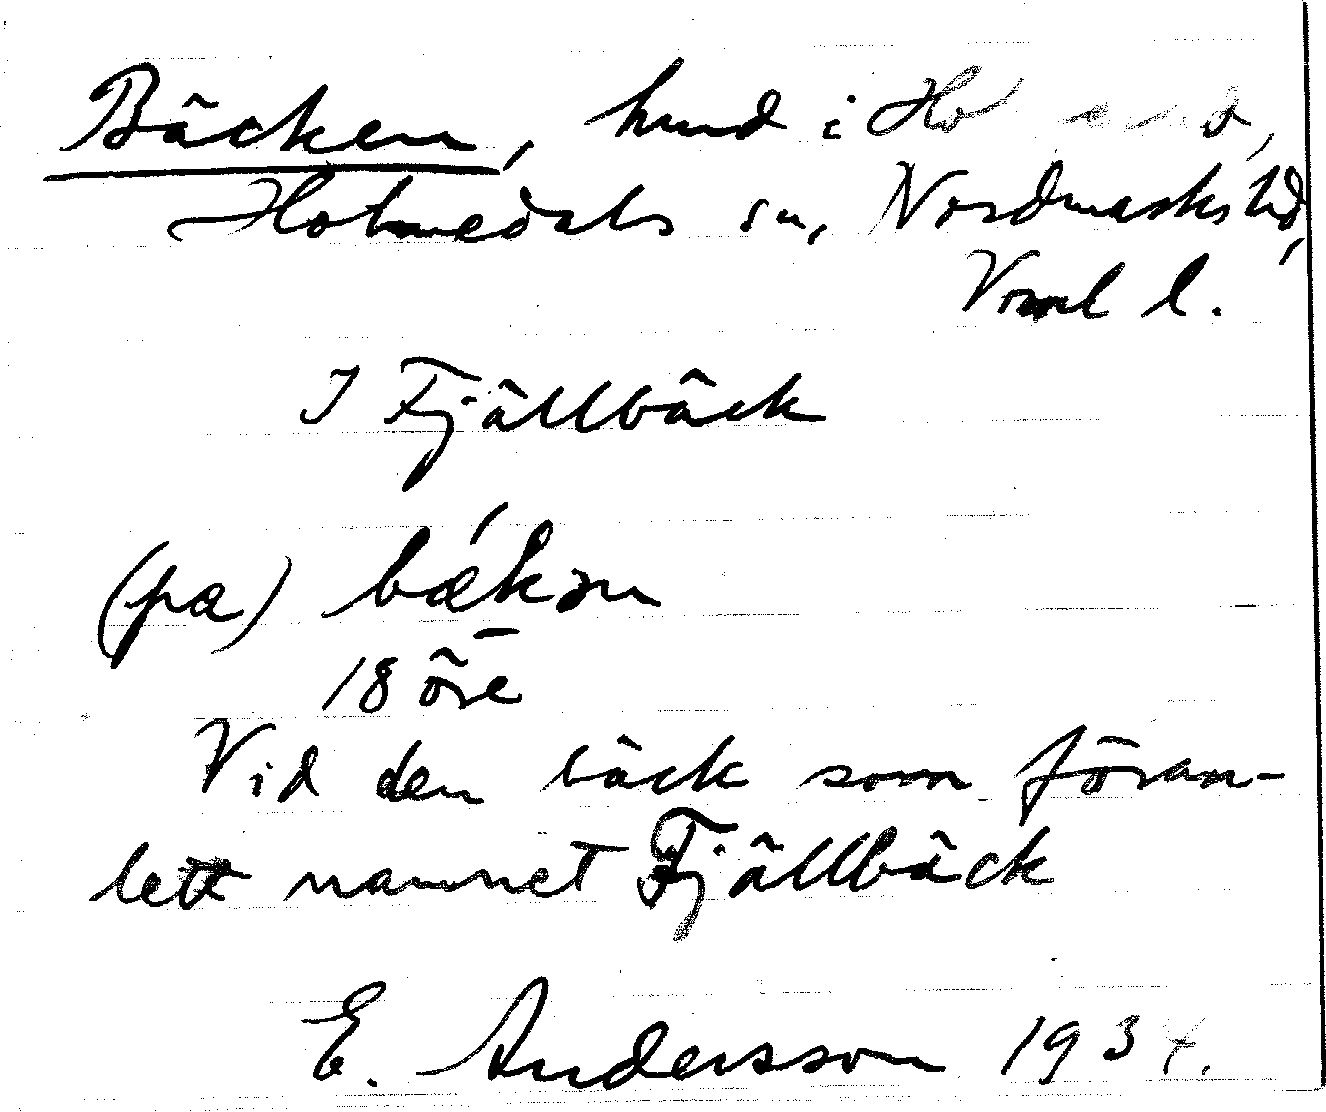 Bäcken, hmd i
Holmedals sn, Nordmarks hd,
Värml l.
I Fjällbäck
(pa) bǽkən
18 öre
Vid den bäck som föran-
lett namnet Fjällbäck
E. Andersson 1934.